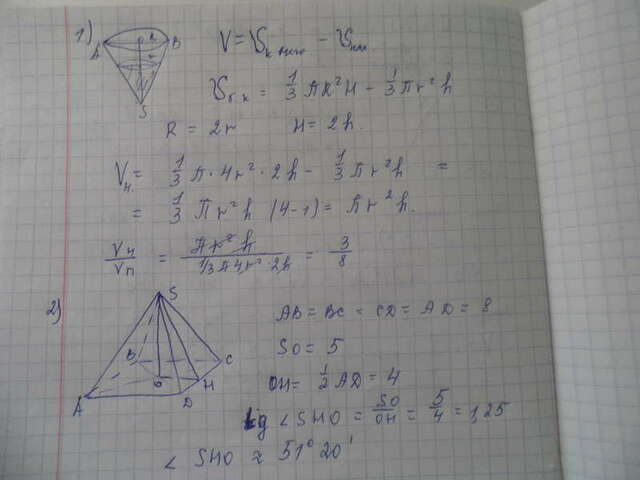 1) R A B r S
V = V
V = 1/3 πR²H − 1/3 πr²h
R = 2r H = 2h.
V = 1/3 π · 4r² · 2h − 1/3 πr²h =
= 1/3 πr²h (4−1) = πr²h.
= πr²h / 1/3 π4r²·2h = 3/8
2) S B C O H A D
AB = BC = CD = AD = 8
SO = 5
OH = 1/2 AD = 4
tg ∠SHO = SO/OH = 5/4 = 1,25
∠ SHO ≈ 51° 20'